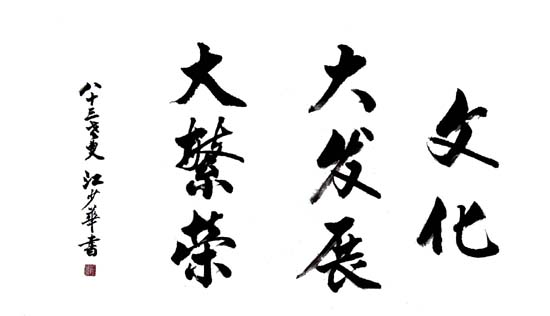 文化
大发展
大繁荣
八十三老叟 江少华書